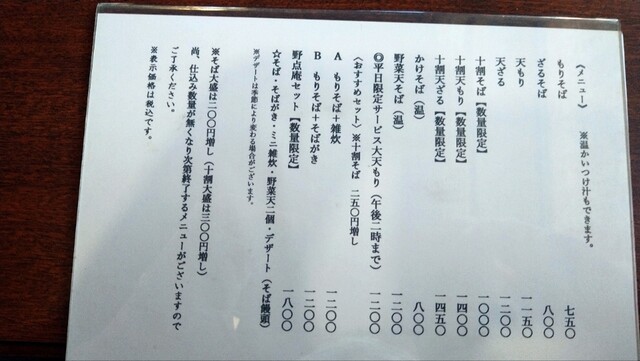 《メニュー》　※温かいつけ汁もできます。
もりそば　七五〇
ざるそば　八〇〇
天もり　一一五〇
天ざる　一二〇〇
十割そば【数量限定】　一〇〇〇
十割天もり【数量限定】　一四〇〇
十割天ざる【数量限定】　一四五〇
かけそば（温）　八〇〇
野菜天そば（温）　一二〇〇
◎平日限定サービス大天もり（午後二時まで）　一二〇〇
〈おすすめセット〉※十割そば　二五〇円増し
A　もりそば＋雑炊　一二〇〇
B　もりそば＋そばがき　一二〇〇
野点庵セット【数量限定】　一八〇〇
☆そば・そばがき・ミニ雑炊・野菜天二個・デザート（そば饅頭）
※デザートは季節により変わる場合がございます。
※そば大盛は二〇〇円増し（十割大盛は三〇〇円増し）
尚、仕込み数量が無くなり次第終了するメニューがございますので
ご了承ください。
※表示価格は税込です。